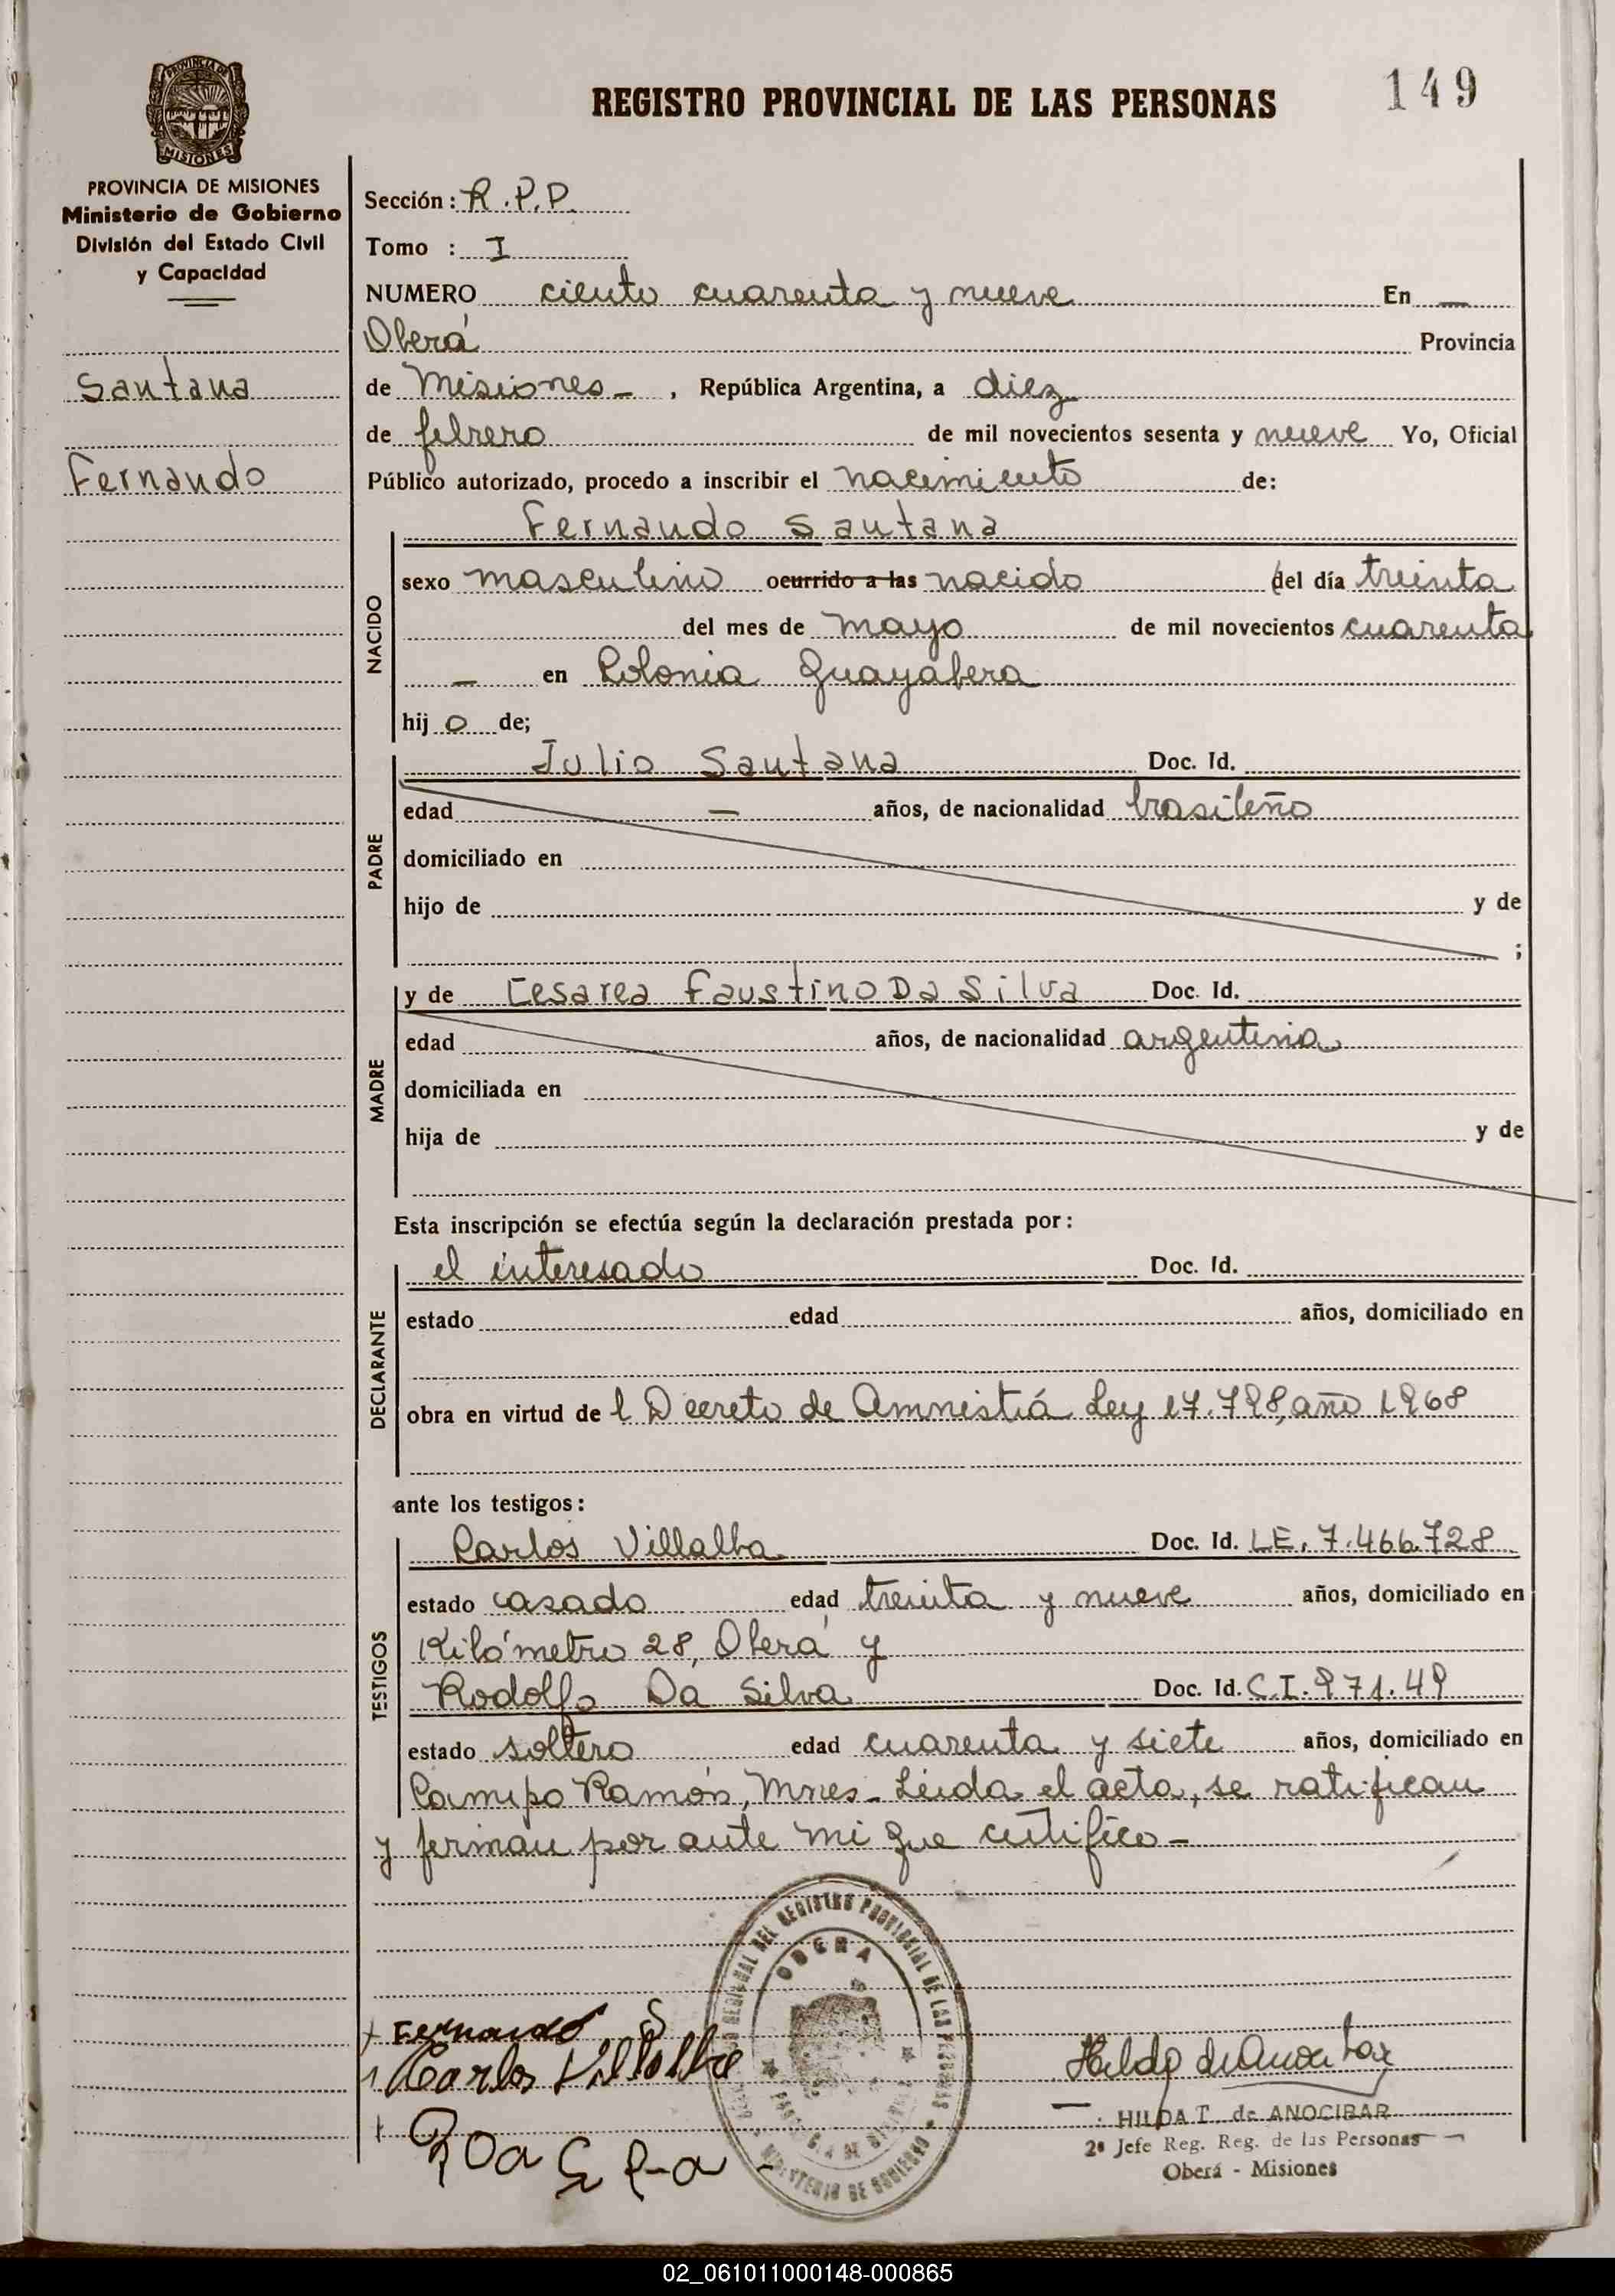 149
REGISTRO PROVINCIAL DE LAS PERSONAS
PROVINCIA DE MISIONES
PROVINCIA DE MISIONES
Ministerio de Gobierno
División del Estado Civil
y Capacidad
Santana
Fernando
Sección: R.P.P.
Tomo : I
NUMERO ciento cuarenta y nueve En —
Oberá Provincia
de Misiones - , República Argentina, a diez
de febrero de mil novecientos sesenta y nueve Yo, Oficial
Público autorizado, procedo a inscribir el nacimiento de:
Fernando Santana
NACIDO
sexo masculino ocurrido a las nacido del día treinta
del mes de mayo de mil novecientos cuarenta
— en Colonia Guayabera
hij o de;
PADRE
Julio Santana Doc. Id.
edad — años, de nacionalidad brasileño
domiciliado en
hijo de y de
;
MADRE
y de Cesarea Faustino Da Silva Doc. Id.
edad años, de nacionalidad argentina
domiciliada en
hija de y de
Esta inscripción se efectúa según la declaración prestada por:
DECLARANTE
el interesado Doc. Id.
estado edad años, domiciliado en
obra en virtud de l Decreto de Amnistiá Ley 17.798, año 1968
ante los testigos:
TESTIGOS
Carlos Villalba Doc. Id. LE. 7.466.728
estado casado edad treinta y nueve años, domiciliado en
Kilómetro 28, Oberá y
Rodolfo Da Silva Doc. Id. C.I. 971.49
estado soltero edad cuarenta y siete años, domiciliado en
Campo Ramón, Mnes - Leida el acta, se ratifican
y firman por ante mi que certifico -
REGIONAL DEL REGISTRO PROVINCIAL DE LAS PERSONAS
OBERA
MINISTERIO DE GOBIERNO
Fernando S
Carlos Villalba
HILDA T. de ANOCIBAR
2º Jefe Reg. Reg. de las Personas
Oberá - Misiones
02_061011000148-000865